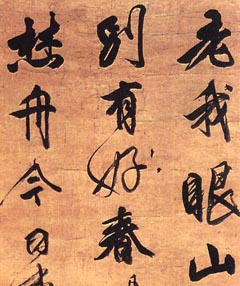 老我眼山
別有好春
桂舟今日